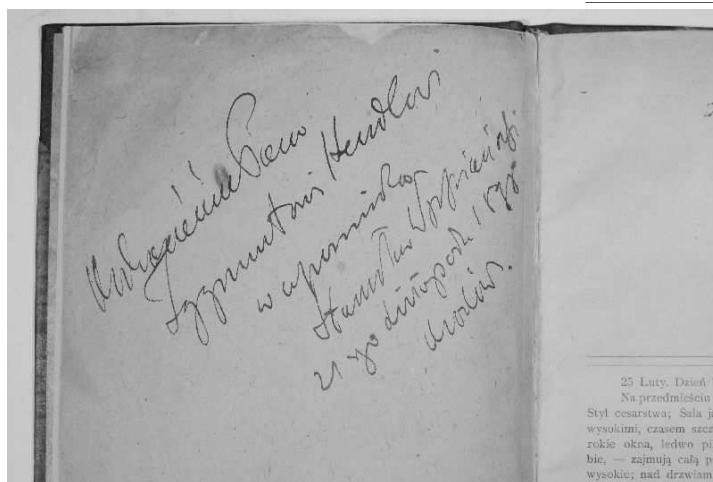 Wielmożnemu Panu
Zygmuntowi Hendlowi
w upominku
Stanisław Wyspiański
21 go Listopada 1898
Kraków.
25 Luty. Dzień
Na przedmieściu
Styl cesarstwa; Sala
wysokimi, czasem
rokie okna, ledwo
bie, — zajmują całą
wysokie; nad drzwiam